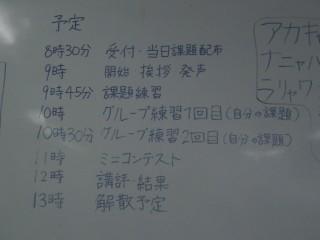 予定
8時30分 受付・当日課題配布
9時 開始 挨拶 発声
9時45分 課題練習
10時 グループ練習1回目(自分の課題)
10時30分 グループ練習2回目(自分の課題)
11時 ミニコンテスト
12時 講評・結果
13時 解散予定
アカキャ
ナニャハ
ラリャワ